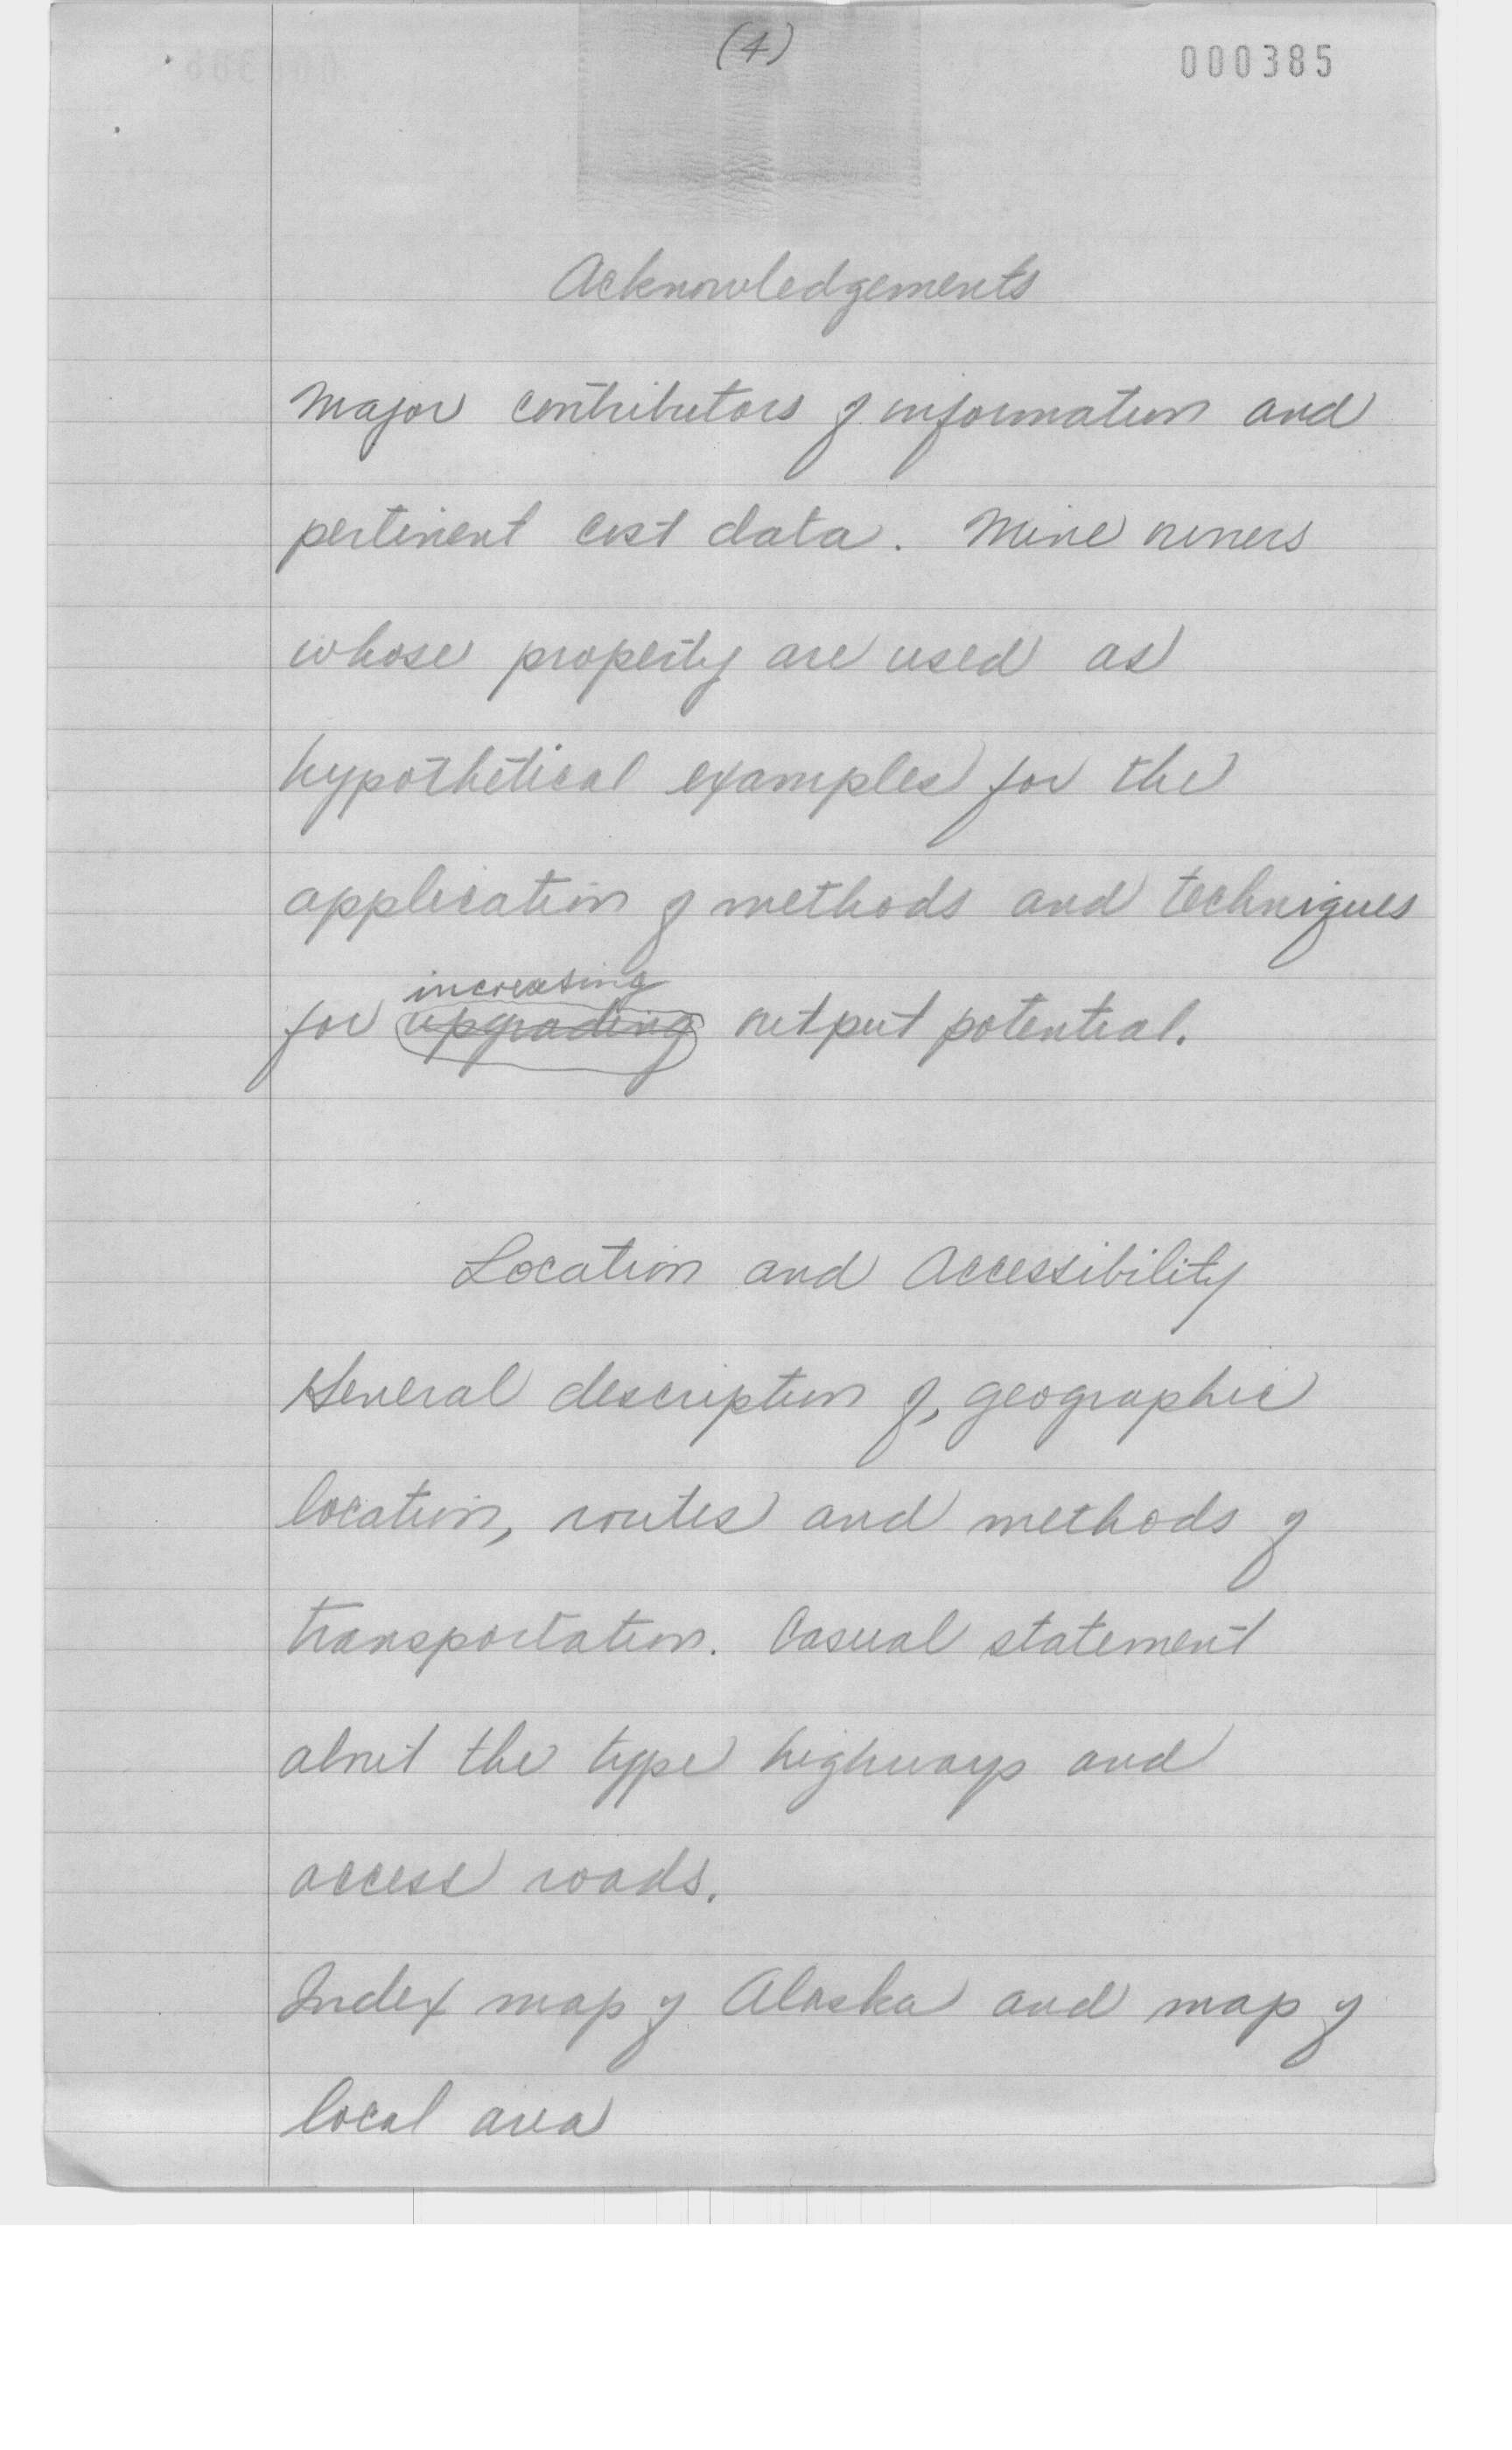 (4)
000385
Acknowledgements
Major contributors of information and
pertinent cost data. Mine owners
whose property are used as
hypothetical examples for the
application of methods and techniques
increasing
for upgrading output potential.
Location and Accessibility
General description of, geographic
location, routes and methods of
transportation. Casual statement
about the type highways and
access roads.
Index map of Alaska and map of
local area